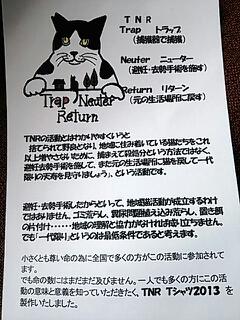 TNR
Trap トラップ
(捕獲器で捕獲)
Neuter ニューター
(避妊・去勢手術を施す)
Return リターン
(元の生活場所に戻す)
Trap Neuter
Return
TNRの活動とはわかりやすくいうと
捨てられて野良となり、地域に住み着いている猫たちをこれ
以上増やさないために、捕まえて殺処分という方法ではなく、
避妊・去勢手術を施して、また元の生活場所に猫を戻して一代
限りの天寿を見守りましょう」、という活動です。
避妊・去勢手術したからといって、地域猫活動が成立するわけ
ではありません。ゴミ荒らし、糞尿問題植え込み荒らし、置き餌
の片付け・・・・・・地域の理解と協力がなければ成り立ちません。
でも「一代限り」というのは最低条件であると考えます。
小さくとも尊い命の為に全国で多くの方がこの活動に参加されてま
す。
でも命の数にはまだまだ及びません。一人でも多くの方にこの活
動の意味と意義を知っていただきたく、TNR Tシャツ2013 を
製作いたしました。